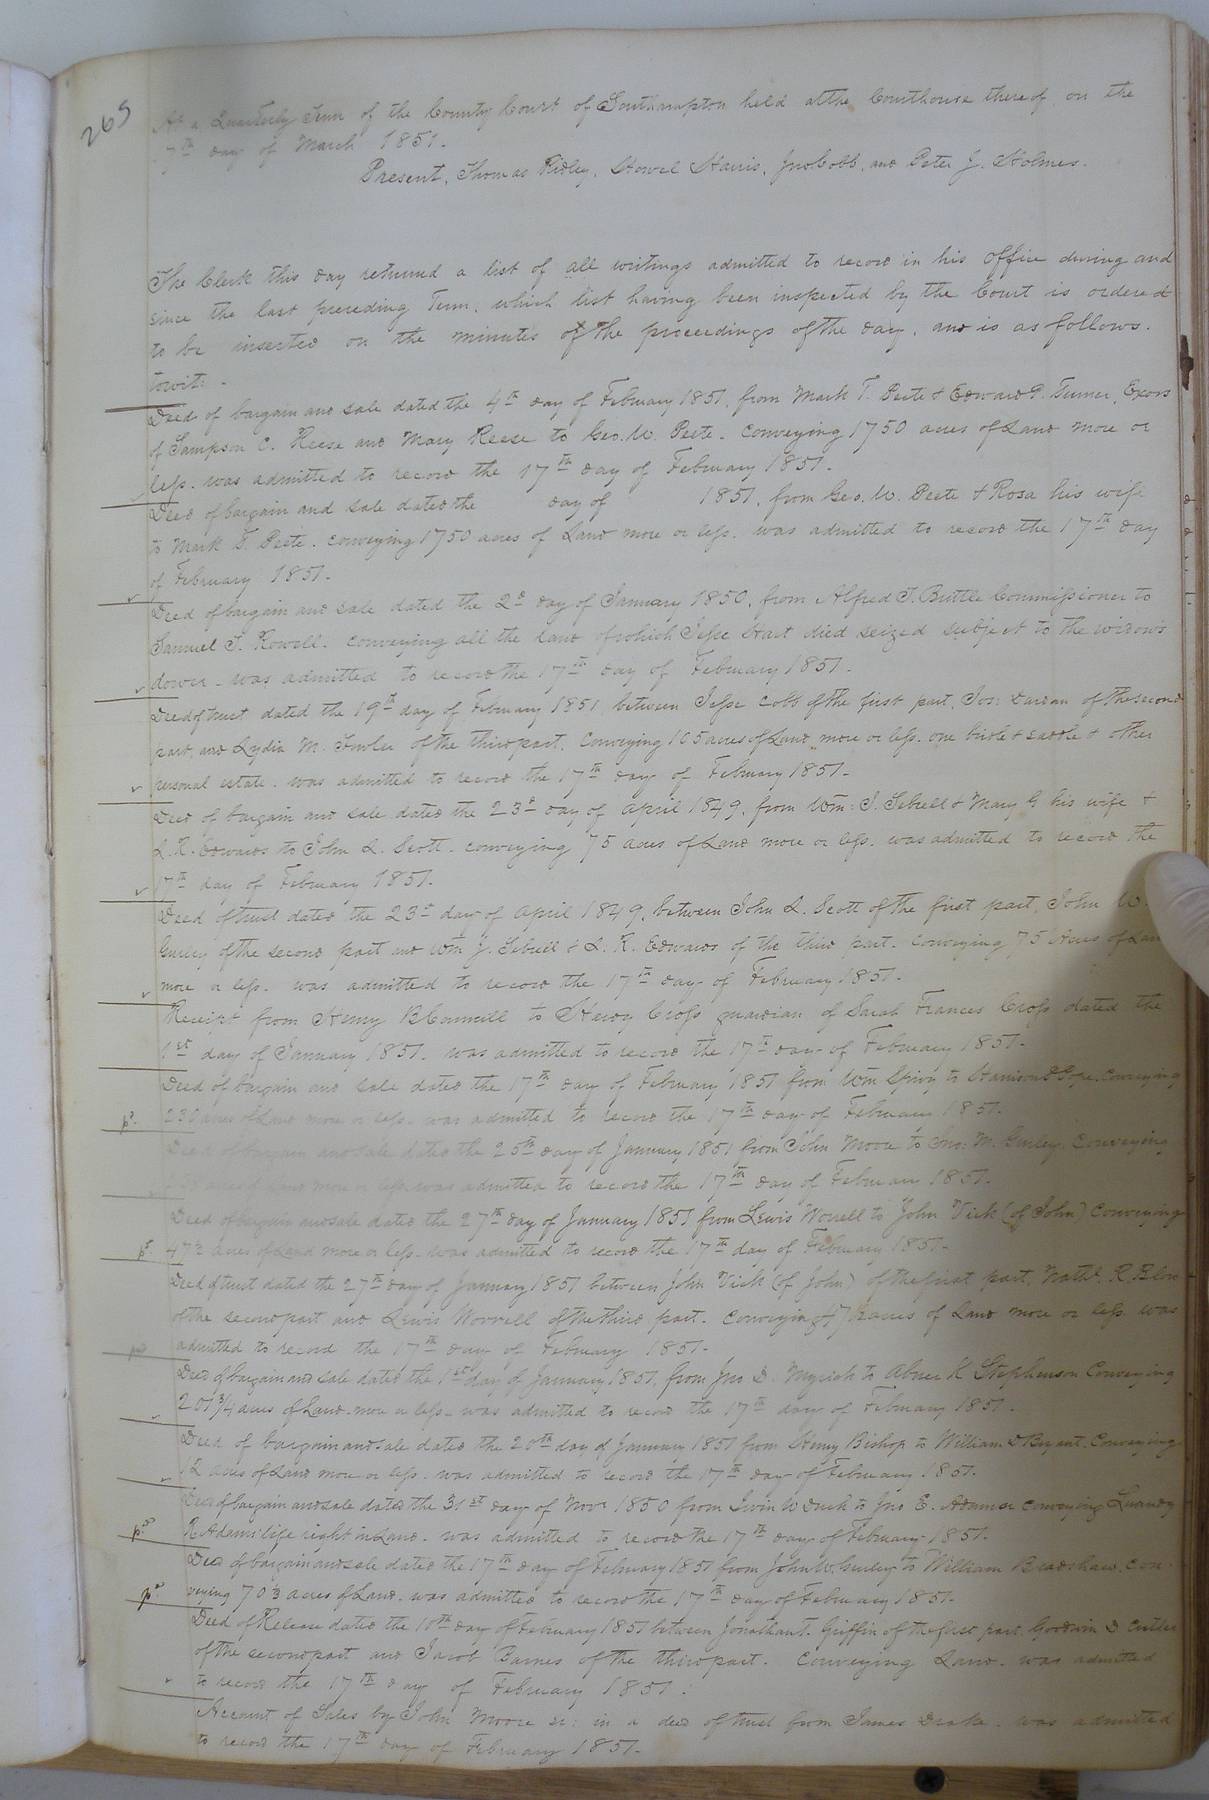 265
At a Quarterly Term of the County Court of Southampton held at the Courthouse thereof on the
17th day of March 1851.
Present, Thomas Ridley, Howel Harris, Jno Cobb, and Peter J. Holmes.
The Clerk this day returned a list of all writings admitted to record in his office during and
since the last preceding Term, which list having been inspected by the Court is ordered
to be inserted on the minutes of the proceedings of the day, and is as follows.
towit: -
Deed of bargain and sale dated the 4th day of February 1851, from Mark T. Peete & Edward P. Turner, Exors
of Sampson C. Reese and Mary Reese to Geo. W. Peete. conveying 1750 acres of Land more or
less. was admitted to record the 17th day of February 1851.
Deed of bargain and sale dated the day of 1851, from Geo. W. Peete & Rosa his wife
to Mark T. Peete. conveying 1750 acres of Land more or less. was admitted to record the 17th day
of February 1851.
Deed of bargain and sale dated the 2d day of January 1850, from Alfred T. Buttle Commissioner to
Samuel T. Rowell. conveying all the land of which Jesse Hart died seized subject to the widow's
dower - was admitted to record the 17th day of February 1851.
Deed of trust dated the 19th day of February 1851, between Jesse Cobb of the first part, Jos: Dardan of the second
part, and Lydia M. Fowler of the third part. Conveying 105 acres of Land more or less. one bridle & saddle & other
personal estate. was admitted to record the 17th day of February 1851.
Deed of bargain and sale dated the 23d day of April 1849, from Wm: J. Sebrell & Mary G his wife &
L. R. Edwards to John L. Scott. conveying 75 acres of Land more or less. was admitted to record the
17th day of February 1851.
Deed of trust dated the 23d day of April 1849, between John L. Scott of the first part, John W.
Gurley of the second part and Wm J. Sebrell & L. R. Edwards of the third part. conveying 75 Acres of Lan
more or less. was admitted to record the 17th day of February 1851.
Receipt from Henry B Connell to Hardy Cross guardian of Sarah Frances Cross dated the
1st day of January 1851. was admitted to record the 17th day of February 1851.
Deed of bargain and sale dated the 17th day of February 1851 from Wm Spivy to Harrison P Pope. conveying
pd. 230 acres of Land more or less. was admitted to record the 17th day of February 1851.
Deed of bargain and sale dated the 25th day of January 1851 from John Moore to Jno: M. Gurley. Conveying
acres of Land more or less, was admitted to record the 17th day of February 1851.
Deed of bargain and sale dated the 27th day of January 1851 from Lewis Worrell to John Vick (of John) Conveying
pd. 47½ acres of Land more or less. was admitted to record the 17th day of February 1851.
Deed of trust dated the 27th day of January 1851 between John Vick (of John) of the first part, Nathl. R. Blow
of the second part and Lewis Worrell of the third part. Conveying 47½ acres of Land more or less was
pd admitted to record the 17th day of February 1851.
Deed of bargain and sale dated the 1st day of January 1851, from Jno D. Myrick to Abner K Stephenson Conveying
201¾ acres of Land. more or less - was admitted to record the 17th day of February 1851.
Deed of bargain and sale dated the 20th day of January 1851 from Henry Bishop to William D Bryant. Conveying
12 acres of Land more or less. was admitted to record the 17th day of February 1851.
Deed of bargain and sale dated the 31st day of Novr 1850 from Irvin W Duck to Jno E. Adams conveying
pd. R Adams life right in Land. was admitted to record the 17th day of February 1851.
Deed of bargain and sale dated the 17th day of February 1851 from John W. Gurley to William Bradshaw con-
pd. veying 70⅓ acres of Land. was admitted to record the 17th day of February 1851.
Deed of Release dated the 10th day of February 1851 between Jonathan T. Griffin of the first part Goodwin D Cutler
of the second part and Jacob Barnes of the third part. Conveying Land. was admitted
to record the 17th day of February 1851.
Account of Sales by John Moore sr: in a deed of trust from James Drake. was admitted
to record the 17th day of February 1851.